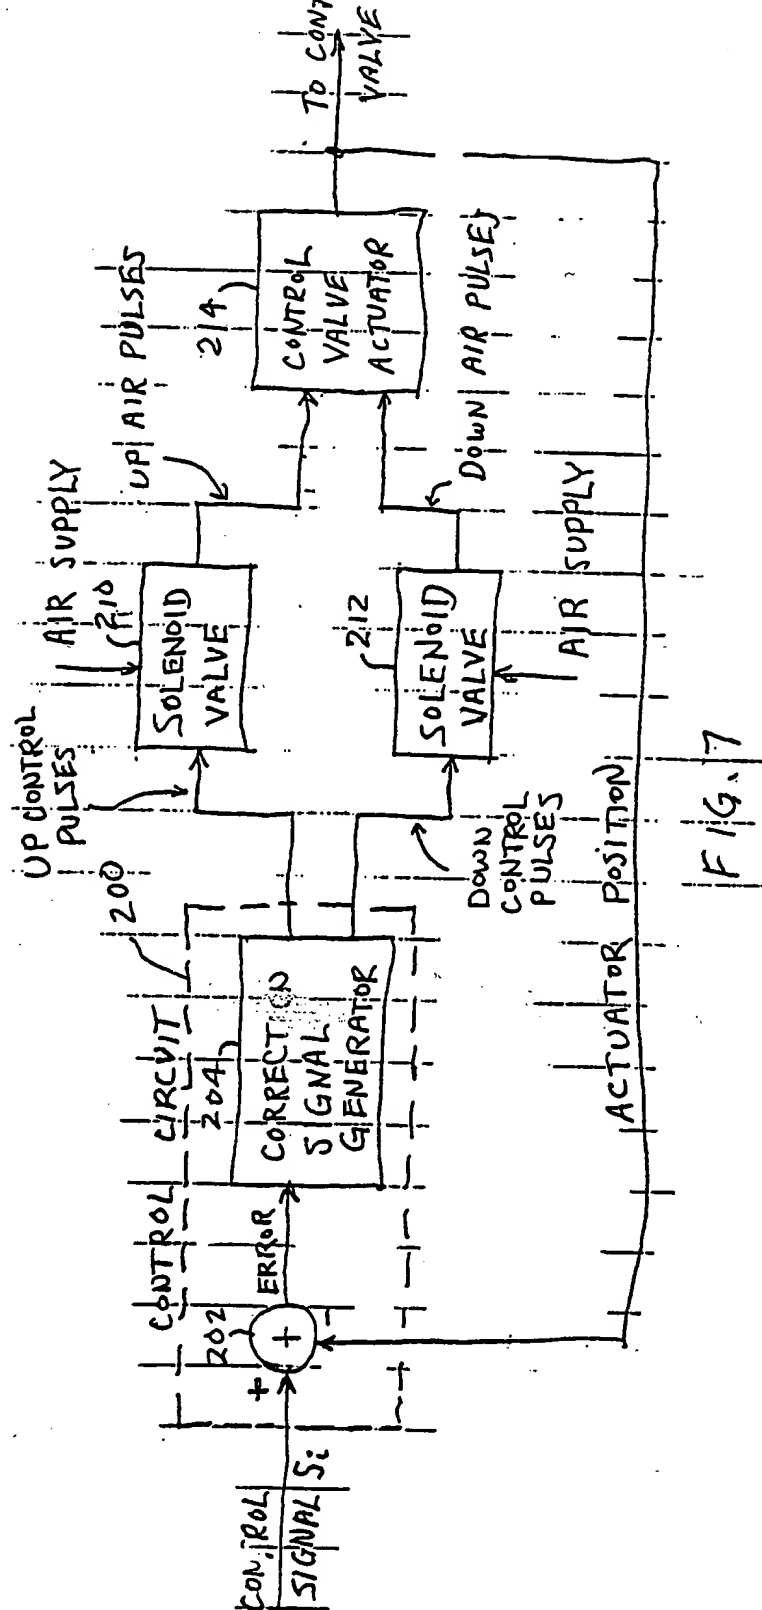 CONTROL
SIGNAL Si
+
202
+
-
ERROR
CONTROL CIRCUIT
200
204
CORRECTION
SIGNAL
GENERATOR
UP CONTROL
PULSES
DOWN
CONTROL
PULSES
AIR SUPPLY
210
SOLENOID
VALVE
212
SOLENOID
VALVE
AIR SUPPLY
UP AIR PULSES
DOWN AIR PULSES
214
CONTROL
VALVE
ACTUATOR
TO CONT
VALVE
ACTUATOR POSITION
FIG. 7